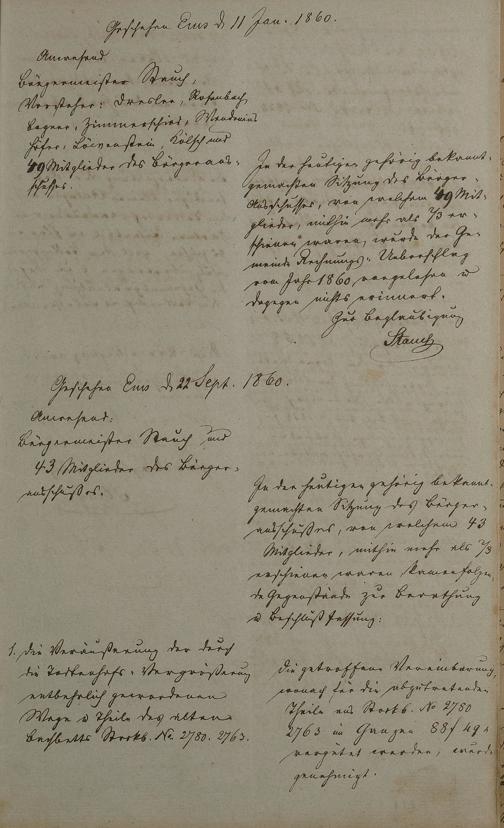 Geschehen Ems d 11 Jan. 1860.
Anwesend
Bürgermeister Stauch,
Vorsteher: Dresler, Rosenbach,
Zimmerschied,
Höfer, Löwenstein, Kölsch und
49 Mitglieder des Bürgeraus-
schusses.
In der heutigen gehörig bekannt-
gemachten Sitzung des Bürger-
Ausschusses, von welchem 49 Mit-
glieder, mithin mehr als 2/3 er-
schienen waren, wurde der Ge-
meinde Rechnungs-Ueberschlag
vom Jahr 1860 vorgelesen u
dagegen nichts erinnert.
Zur Beglaubigung
Stauch
Geschehen Ems d 22 Sept. 1860.
Anwesend:
Bürgermeister Stauch und
43 Mitglieder des Bürger-
ausschusses.
In der heutigen gehörig bekannt-
gemachten Sitzung des Bürger-
ausschusses, von welchem 43
Mitglieder, mithin mehr als 2/3
erschienen waren kamen folgen-
de Gegenstände zur Berathung
u Beschlußfassung:
1. Die Veräußerung der durch
die Todtenhofs-Vergrößerung
entbehrlich gewordenen
Wege u Theile des alten
Bachbetts Stockb. No. 2780. 2763.
Die getroffene Vereinbarung,
wonach für die abzutretenden
Theile aus Stockb. No 2780
2763 im Ganzen 88 f 49 x
vergütet werden, wurde
genehmigt.